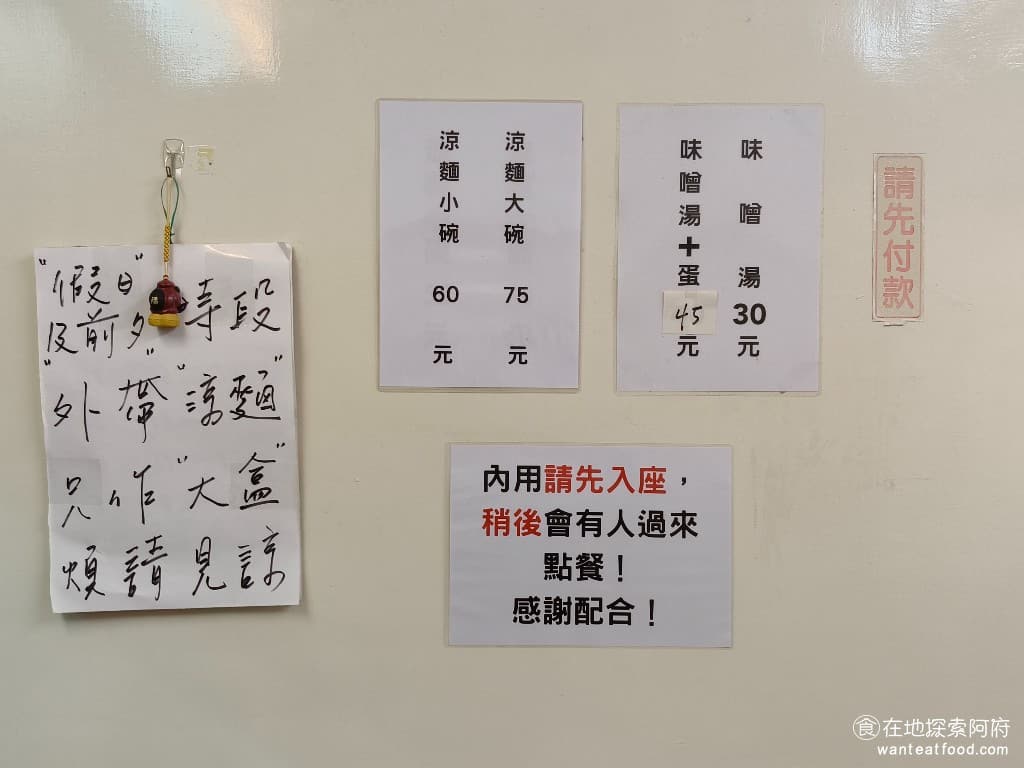 "假日"
及前夕"時段
"外帶"涼麵"
只作"大盒"
煩請見諒
涼麵大碗 75 元
涼麵小碗 60 元
味噌湯30元
味噌湯+蛋45元
請先付款
內用請先入座，
稍後會有人過來
點餐！
感謝配合！
食在地探索阿府
wanteatfood.com